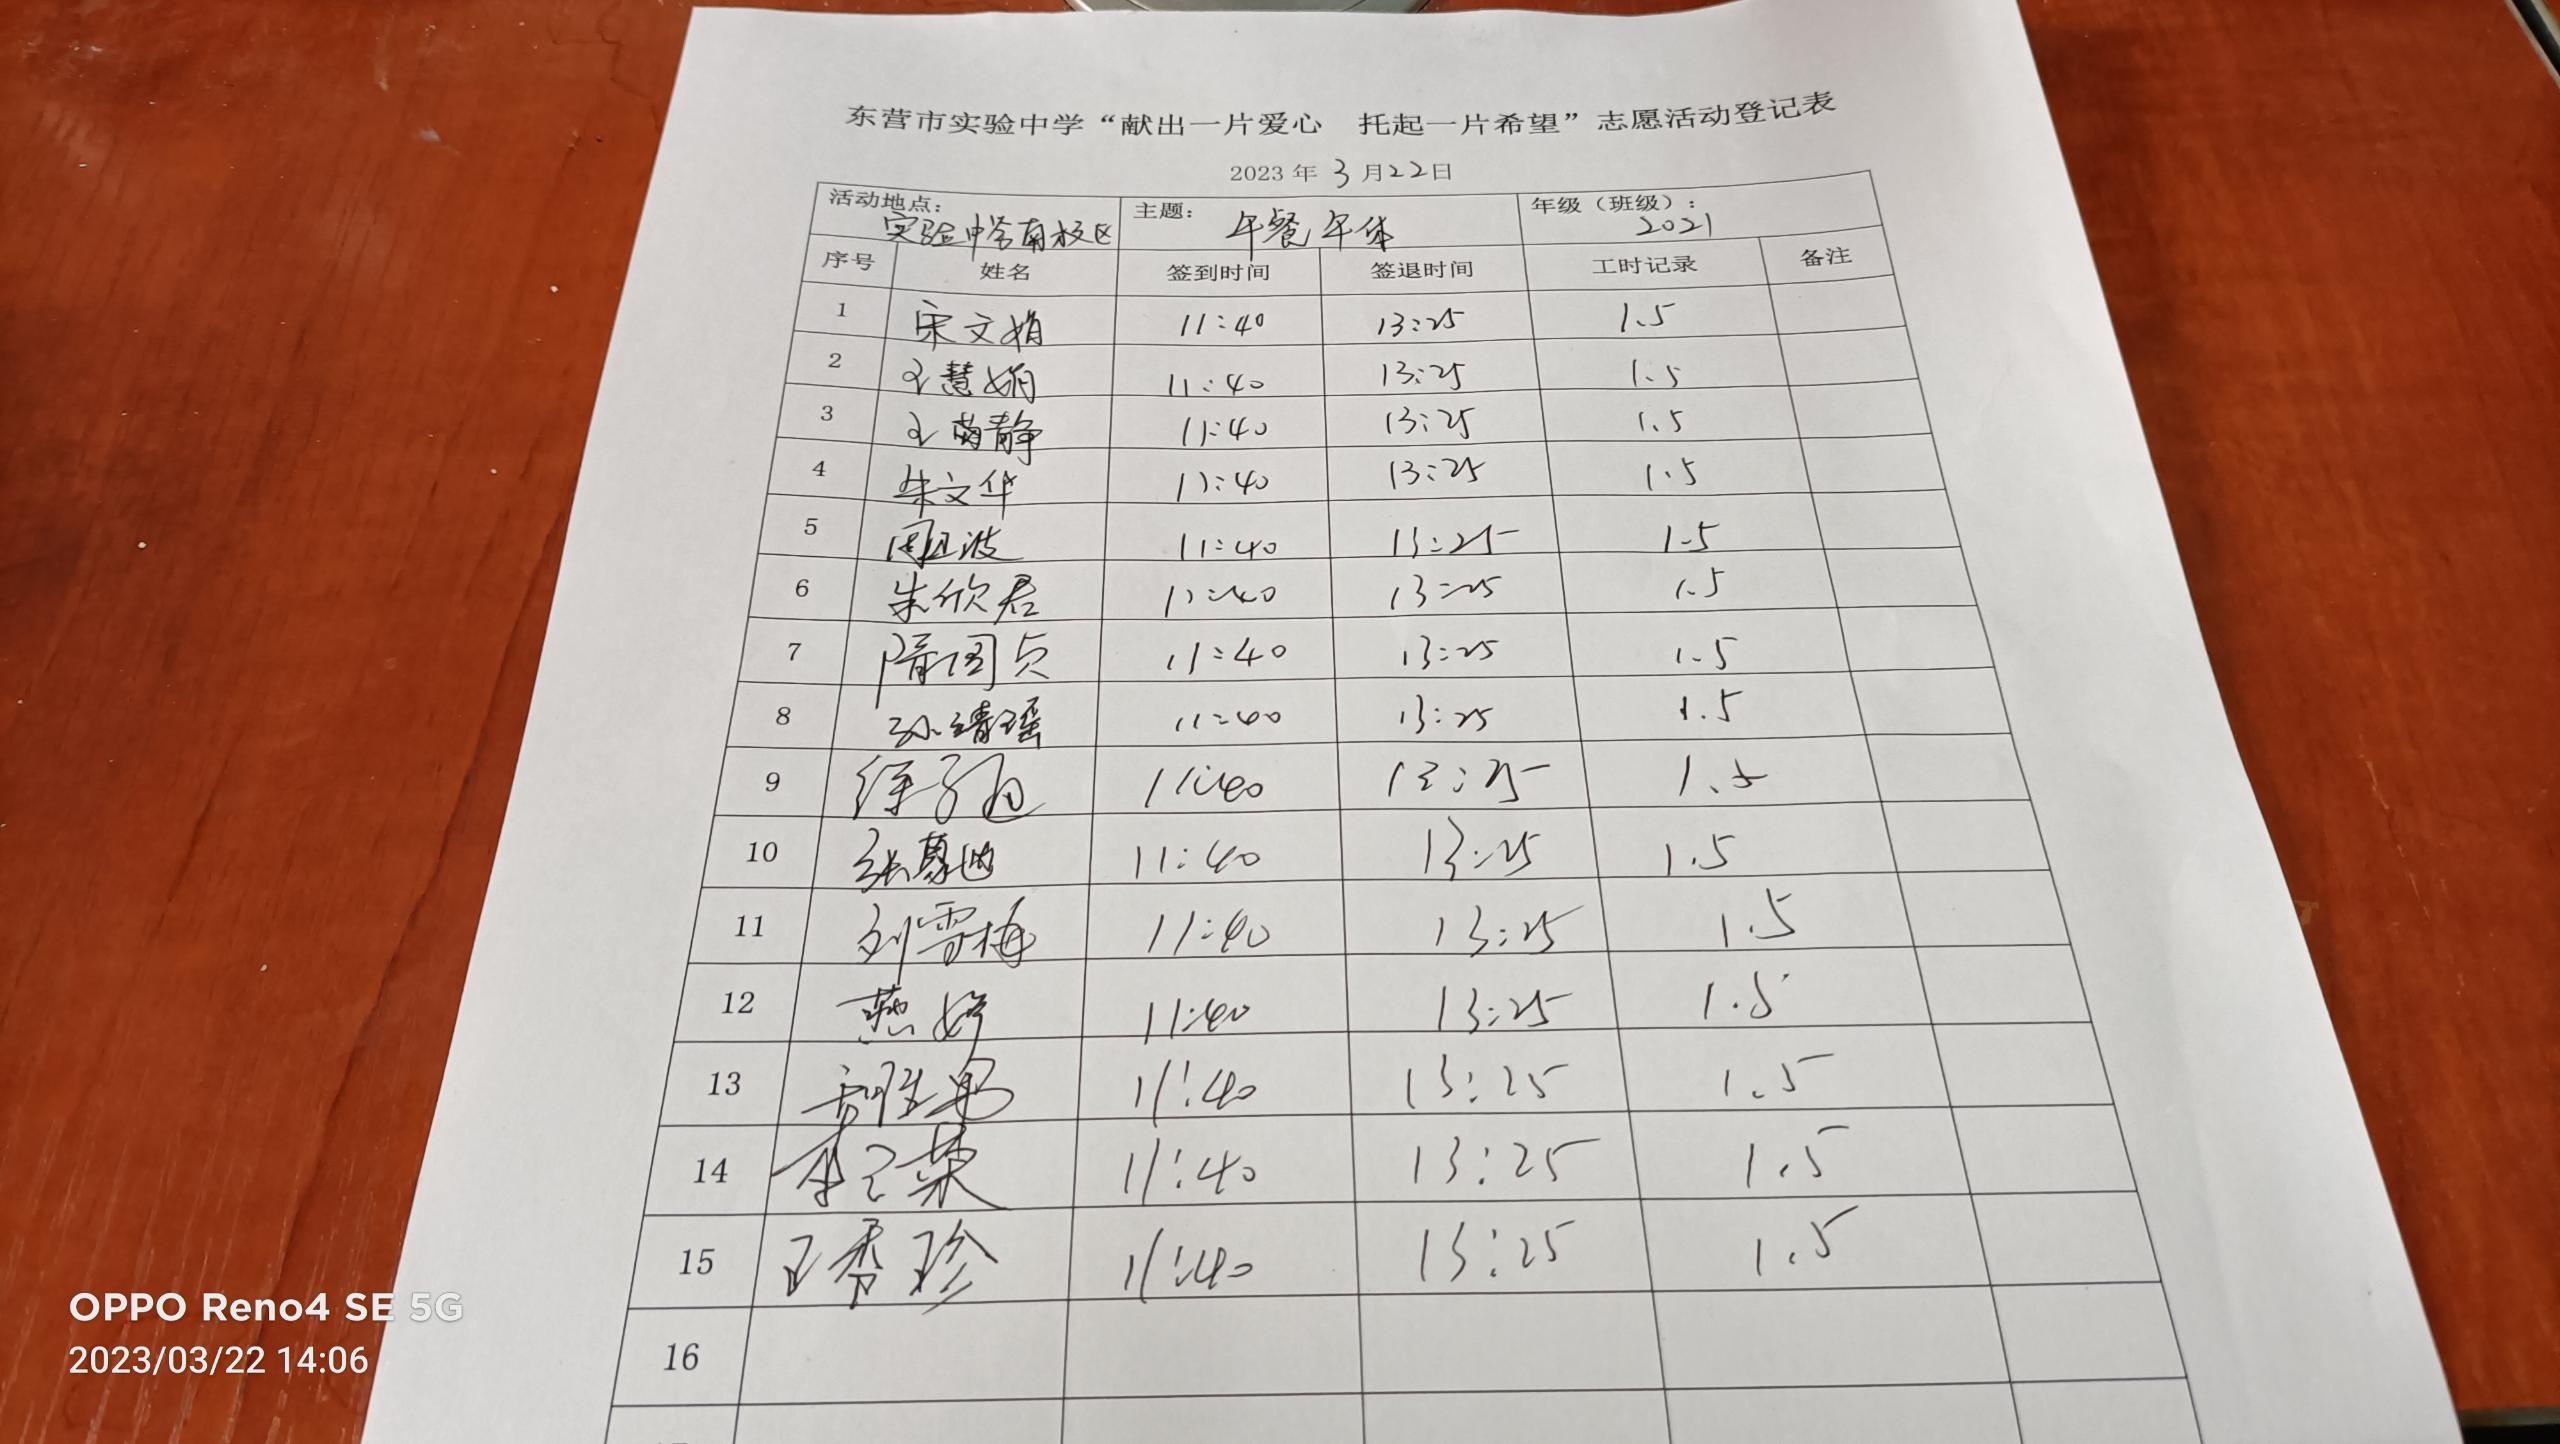 东营市实验中学“献出一片爱心 托起一片希望”志愿活动登记表
2023 年 3 月 22 日
活动地点： 实验中学南校区 主题： 午餐午休 年级（班级）： 2021
序号 姓名 签到时间 签退时间 工时记录 备注
1 宋文娟 11:40 13:25 1.5
2 王慧娟 11:40 13:25 1.5
3 王 静 11:40 13:25 1.5
4 朱文华 11:40 13:25 1.5
5 周 波 11:40 13:25 1.5
6 朱欣君 11:40 13:25 1.5
7 隋国贞 11:40 13:25 1.5
8 孙靖瑶 11:40 13:25 1.5
9 徐子 11:40 13:25 1.5
10 张 迪 11:40 13:25 1.5
11 刘雪梅 11:40 13:25 1.5
12 燕婷 11:40 13:25 1.5
13 11:40 13:25 1.5
14 李 荣 11:40 13:25 1.5
15 王香珍 11:40 13:25 1.5
16
OPPO Reno4 SE 5G
2023/03/22 14:06